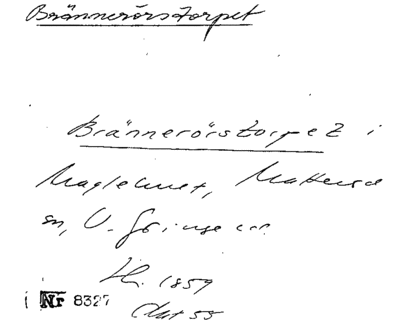 Brännerörstorpet
Brännerörstorpet i
Maglehult,
sn, V. Göinge
1859
Nr 8327